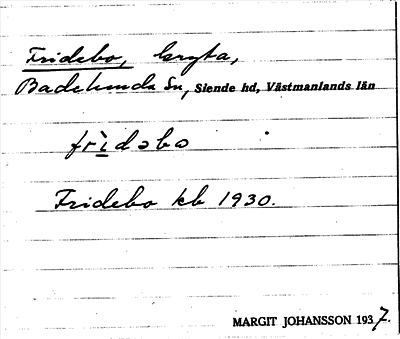 Fridebo, bryta,
Badelunda Sn, Siende hd, Västmanlands län
frìdəbo
Fridebo kb 1930.
MARGIT JOHANSSON 1937.